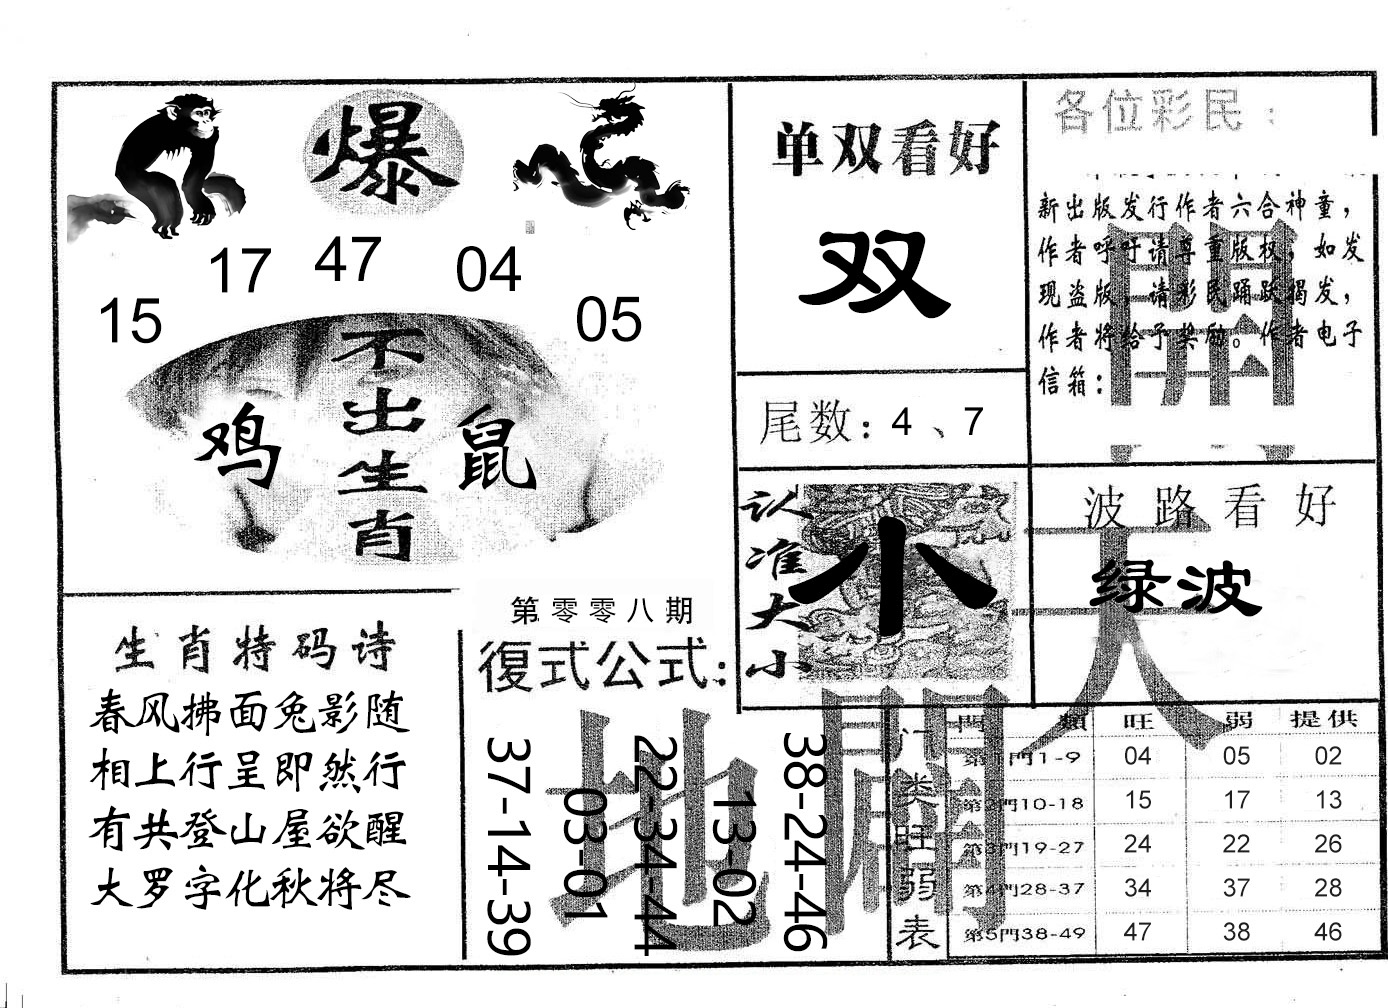 爆
17 47 04
15 05
不出生肖
鸡 鼠
单双看好
双
尾数：4、7
各位彩民：
新出版发行作者六合神童，
作者呼吁请尊重版权，如发
现盗版，请彩民踊跃揭发，
作者将给予奖励。作者电子
信箱：
認准大小
小
波路看好
绿波
開天
闢地
生肖特码诗
春风拂面兔影随
相上行呈即然行
有共登山屋欲醒
大罗字化秋将尽
第零零八期
復式公式：
37-14-39
03-01
22-34-44
13-02
38-24-46
门类旺弱表
門類 旺 弱 提供
第1門1-9 04 05 02
第2門10-18 15 17 13
第3門19-27 24 22 26
第4門28-37 34 37 28
第5門38-49 47 38 46